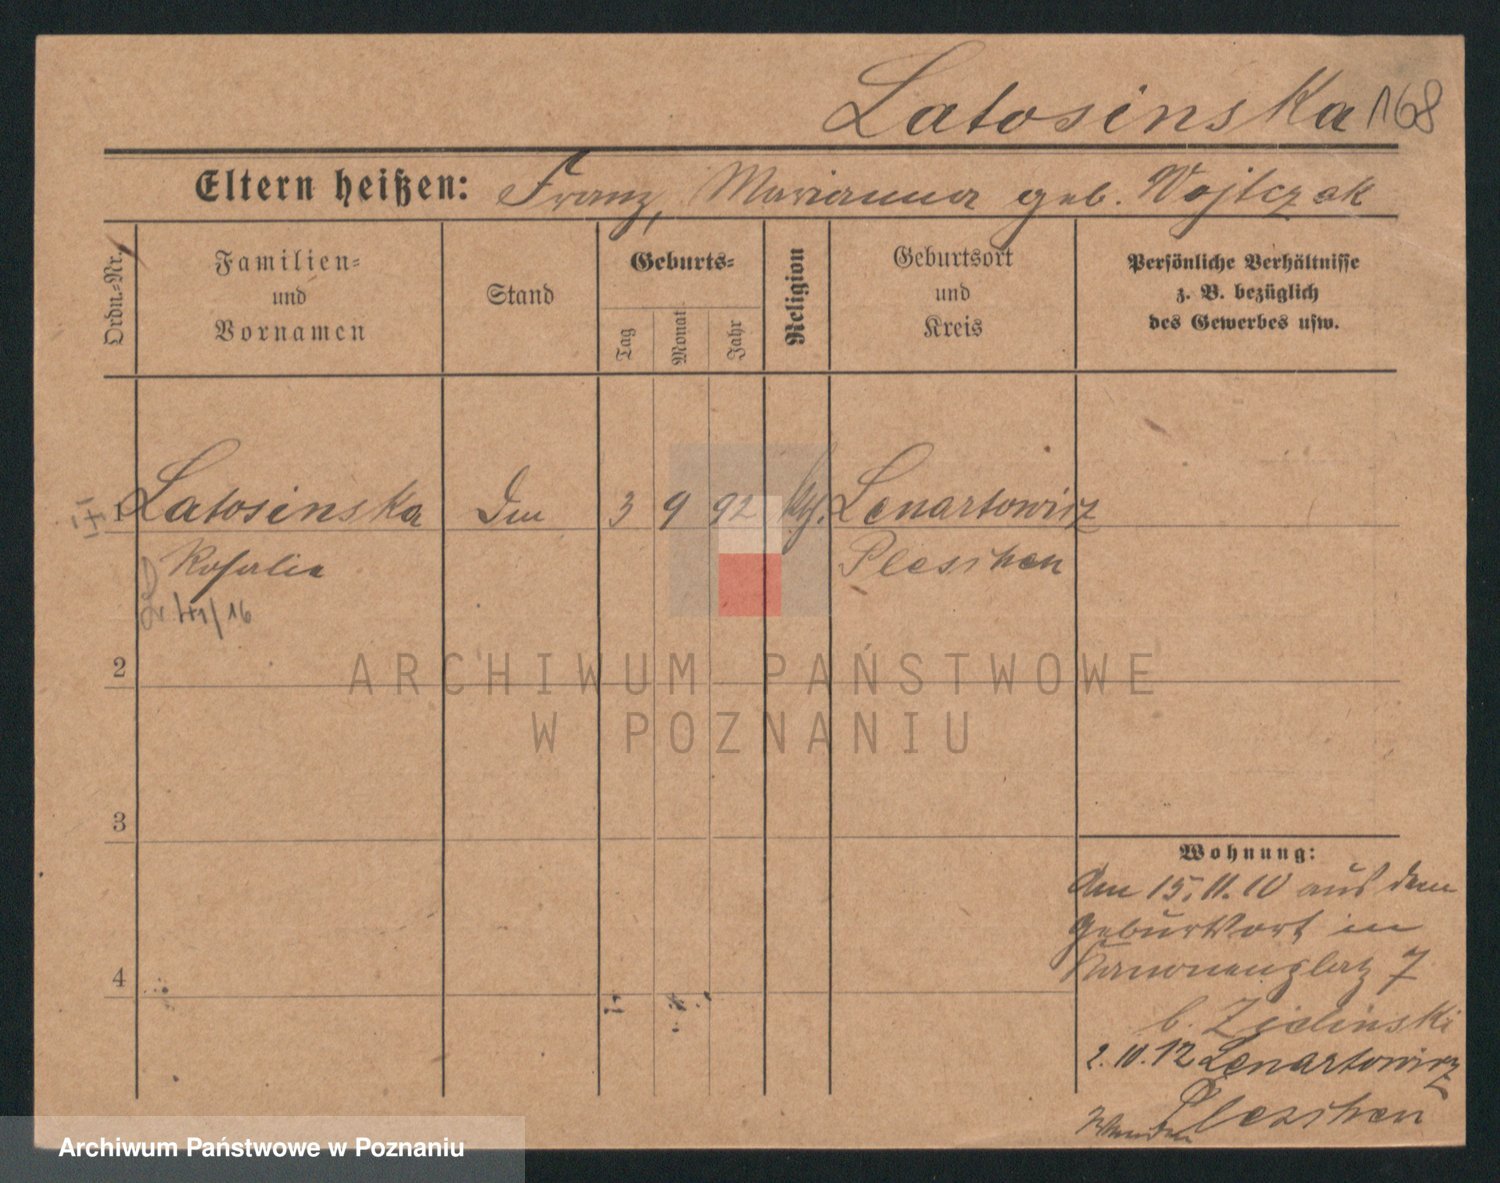 Latosinska 168
Eltern heißen: Franz, Marianna geb. Wojtczak
Ordn.-Nr.
Familien-
und
Vornamen
Stand
Geburts-
Tag
Monat
Jahr
Religion
Geburtsort
und
Kreis
Persönliche Verhältnisse
z. B. bezüglich
des Gewerbes usw.
1 Latosinska
3 9 92 Lenartowitz
Rosalie Pleschen
2
3
4
Wohnung:
Am 15.11.10 aus dem
Geburtsort in
Kanonenplatz 7
b. Zielinski
2.10.12 Lenartowitz
Pleschen
Wenden
ARCHIWUM PAŃSTWOWE
W POZNANIU
Archiwum Państwowe w Poznaniu